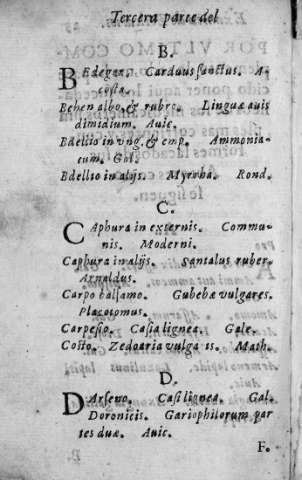 Tercera parte del
B.
BEdegar. Carduus sanctus. A-
costa.
Behen albo, & rubro. Linguæ auis
dimidium. Auic.
Bdellio in vng. & emp. Ammonia-
cum. Gal.
Bdellio in alijs. Myrrha. Rond.
C.
CAphura in externis. Commu-
nis. Moderni.
Caphura in alijs. Santalus ruber.
Arnaldus.
Carpo balsamo. Gubebæ vulgares.
Placotomus.
Carpesio. Casia lignea. Gale.
Costo. Zedoaria vulga is. Math.
D.
DArseno. Casi lignea. Gal.
Doronicis. Gariophilorum par
tes duæ. Auic.
F.